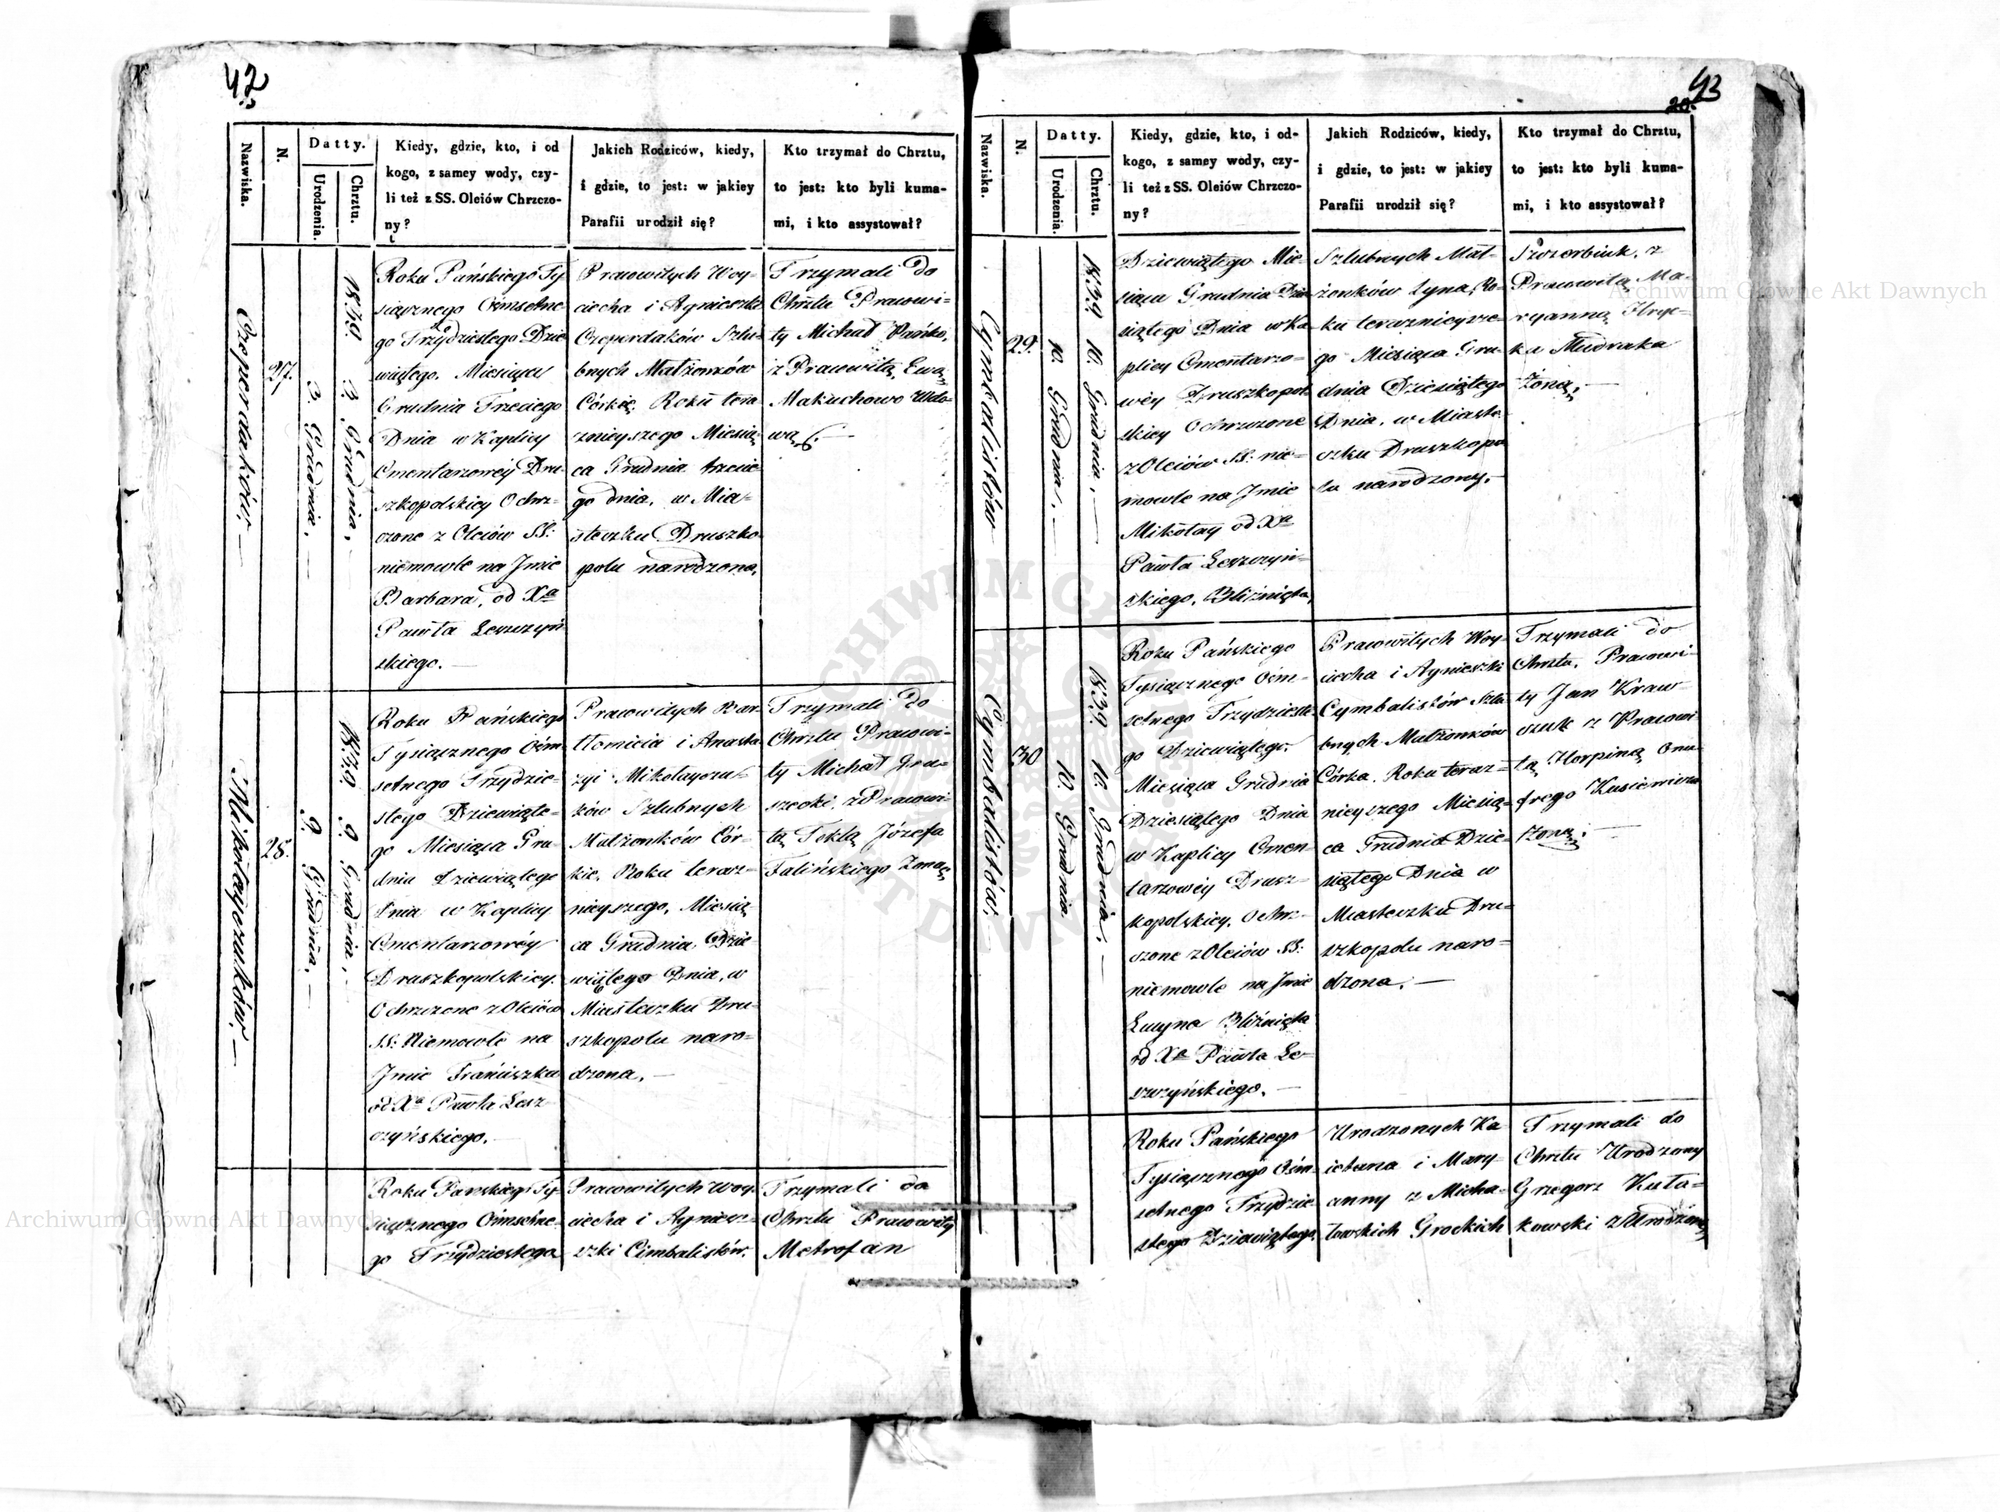 42
Nazwiska.
N.
Datty.
Urodzenia.
Chrztu.
Kiedy, gdzie, kto, i od
kogo, z samey wody, czy-
li też z SS. Oleiów Chrzczo-
ny?
Jakich Rodziców, kiedy,
i gdzie, to jest: w jakiey
Parafii urodził się?
Kto trzymał do Chrztu,
to jest: kto byli kuma-
mi, i kto assystował?
Czeperdaków. —
27.
3. Grudnia. —
1839. 3. Grudnia. —
Roku Pańskiego Ty-
siącznego Ośmsetne-
go Trzydziestego Dzie
wiątego. Miesiąca
Grudnia Trzeciego
Dnia w Kaplicy
Cmentarzowéy Dru-
szkopolskiey Ochrz-
czone z Oleiów SS:
niemowle na Jmie
Barbara, od Xa
Pawła Leszczyń
skiego. —
Pracowitych Woy-
ciecha i Agnieszki
Czeperdaków Szlu-
bnych Małżonków
Córkie. Roku tera
znieyszego Miesią
ca Grudnia trzecie
go dnia, w Mia-
steczku Druszko-
polu narodzona.
Trzymali do
Chrztu Pracowi-
ty Michał Pańko,
z Pracowitą Ewą
Makuchowo Wdo-
wą. —
Mikołayczuków. —
28.
9. Grudnia. —
1839 9 Grudnia. —
Roku Pańskiego
Tysiącznego Ośm
setnego Trzydzie-
stego Dziewiąte-
go Miesiąca Gru-
dnia dziewiątego
Dnia w Kaplicy
Cmentarzowéy
Druszkopolskiey.
Ochrzczone z Oleiów
SS: Niemowle na
Jmie Franciszka
od Xa Pawła Lesz
czyńskiego. —
Pracowitych Bar
tłomieia i Anasta
zyi Mikołayczu-
ków Szlubnych
Małżonków Cór-
kie. Roku teraz-
nieyszego, Miesią
ca Grudnia Dzie-
wiątego Dnia, w
Miasteczku Dru-
szkopolu naro-
dzona. —
Trzymali do
Chrztu Pracowi-
ty Michał
szecki z Pracowi
tą Teklą Józefa
Falińskiego Żoną
Roku Pańskiego Ty-
siącznego Ośmsetne-
go Trzydziestego
Pracowitych Woy-
ciecha i Agniesz-
szki Cimbalistów.
Trzymali do
Chrztu Pracowity
Metrofan
43
Nazwiska.
N.
Datty.
Urodzenia.
Chrztu.
Kiedy, gdzie, kto, i od-
kogo, z samey wody, czy-
li też z SS. Oleiów Chrzczo-
ny?
Jakich Rodziców, kiedy,
i gdzie, to jest: w jakiey
Parafii urodził się?
Kto trzymał do Chrztu,
to jest: kto byli kuma-
mi, i kto assystował?
Cymbalistów
29.
10. Grudnia. —
1839 10. Grudnia. —
Dziewiątego Mie-
siąca Grudnia Dzie
siątego Dnia w Ka-
plicy Cmentarzo-
wéy Druszkopol
skiey Ochrzczone
z Oleiów SS: nie-
mowle na Jmie
Mikołay od Xa
Pawła Leszczyń-
skiego. Bliźnięta,
Szlubnych Mał-
żonków Syna, Ro-
ku teraznieysze-
go Miesiąca Gru-
dnia Dziesiątego
Dnia, w Miaste
czku Druszkopo
lu narodzony. —
Szczerbiuk, z
Pracowitą Ma-
ryanną Hryc-
ka Mudraka
Żoną. —
Cymbalistów.
30
10. Grudnia
1839. 10. Grudnia. —
Roku Pańskiego
Tysiącznego Ośm-
setnego Trzydzieste-
go Dziewiątego.
Miesiąca Grudnia
Dziesiątego Dnia
w Kaplicy Cmen
tarzowéy Drusz-
kopolskiey, Ochrz-
czone z Oleiów SS:
niemowle na Jmie
Bliźnięta
od Xa Pawła Le-
szczyńskiego. —
Pracowitych Woy-
ciecha i Agnieszki
Cymbalistów Szlu
bnych Małżonków
Córka. Roku teraz-
nieyszego Miesią-
ca Grudnia Dzie-
siątego Dnia w
Miasteczku Dru-
szkopolu naro-
dzona. —
Trzymali do
Chrztu, Pracowi
ty Jan Kraw-
czuk z Pracowi
tą Horpiną Onu-
frego Kusiemicza
Żoną. —
Roku Pańskiego
Tysiącznego Ośm-
setnego Trzydzie
stego Dziewiątego,
Urodzonych Ka
ietana i Mary-
anny z Micha-
łowskich Grockich
Trzymali do
Chrztu Urodzony
Grzegorz Kuła-
kowski z Urodzoną
Archiwum Główne Akt Dawnych
Archiwum Główne Akt Dawnych